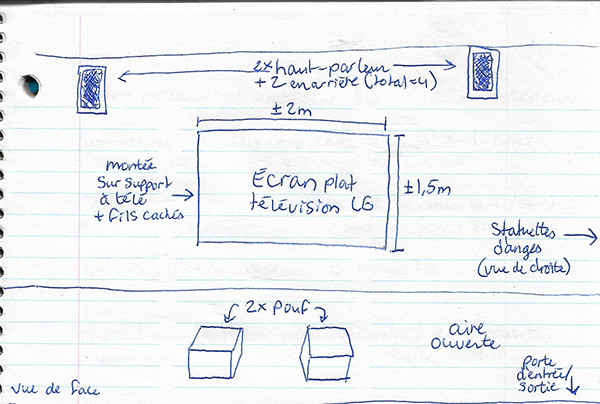 2x haut-parleur
+ 2 en arrière (total=4)
± 2m
montée
sur support
à télé
+ fils cachés
Écran plat
télévision LG
± 1,5m
Statuettes
d'anges
(vue de droite)
2x pouf
aire
ouverte
porte
d'entrée/
sortie
vue de face